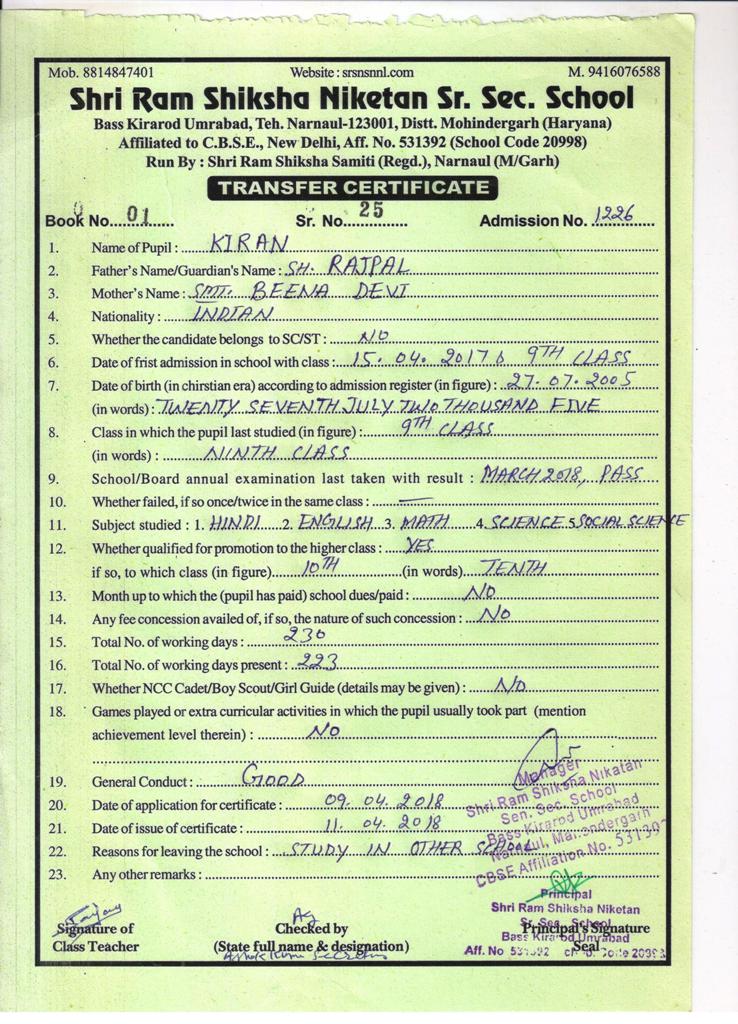 Mob. 8814847401 Website : srsnsnnl.com M. 9416076588
Shri Ram Shiksha Niketan Sr. Sec. School
Bass Kirarod Umrabad, Teh. Narnaul-123001, Distt. Mohindergarh (Haryana)
Affiliated to C.B.S.E., New Delhi, Aff. No. 531392 (School Code 20998)
Run By : Shri Ram Shiksha Samiti (Regd.), Narnaul (M/Garh)
TRANSFER CERTIFICATE
Book No. 01 Sr. No. 25 Admission No. 1226
1. Name of Pupil : KIRAN
2. Father's Name/Guardian's Name : SH. RAJPAL
3. Mother's Name : SMT. BEENA DEVI
4. Nationality : INDIAN
5. Whether the candidate belongs to SC/ST : NO
6. Date of frist admission in school with class : 15.04.2017 9TH CLASS
7. Date of birth (in chirstian era) according to admission register (in figure) : 27.07.2005
(in words) : TWENTY SEVENTH JULY TWO THOUSAND FIVE
8. Class in which the pupil last studied (in figure) : 9TH CLASS
(in words) : NINTH CLASS
9. School/Board annual examination last taken with result : MARCH 2018, PASS
10. Whether failed, if so once/twice in the same class : —
11. Subject studied : 1. HINDI 2. ENGLISH 3. MATH 4. SCIENCE 5. SOCIAL SCIENCE
12. Whether qualified for promotion to the higher class : YES
if so, to which class (in figure) 10TH (in words) TENTH
13. Month up to which the (pupil has paid) school dues/paid : NO
14. Any fee concession availed of, if so, the nature of such concession : NO
15. Total No. of working days : 230
16. Total No. of working days present : 223
17. Whether NCC Cadet/Boy Scout/Girl Guide (details may be given) : NO
18. Games played or extra curricular activities in which the pupil usually took part (mention
achievement level therein) : NO
19. General Conduct : GOOD
20. Date of application for certificate : 09.04.2018
21. Date of issue of certificate : 11.04.2018
22. Reasons for leaving the school : STUDY IN OTHER SCHOOL
23. Any other remarks :
Manager
Shri Ram Shiksha Nikatan
Sen. Sec. School
Bass Kirarod Umrabad
Narnaul, Mahendergarh
CBSE Affiliation No. 531392
Principal
Shri Ram Shiksha Niketan
Sr. Sec. School
Bass Kirarod Umrabad
Aff. No 531392
Signature of Checked by Principal's Signature
Class Teacher (State full name & designation) Seal